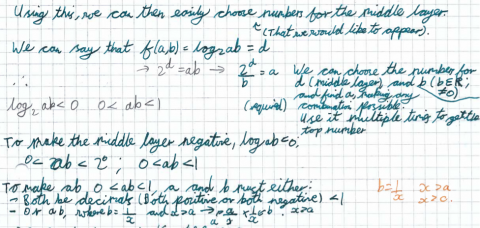 Using this, we can then easily choose numbers for the middle layer.
(That we would like to appear).
We can say that f(a,b) = log₂ab = d
→ 2^d = ab → 2^d/b = a
We can choose the number for
d (middle layer), and b (b∈ℝ;
≠0)
and find a, making any
combination possible.
Use it multiple times to get the
top number
∴
log₂ab<0 0<ab<1
(required)
To make the middle layer negative, log ab<0;
0< ab < 2⁰ ; 0<ab<1
To make ab, 0<ab<1, a and b must either:
- Both be decimals (Both positive or both negative) <1
- Or ab, where b=1/x and x>a →
x>a
b=1/x x>a
x>0.